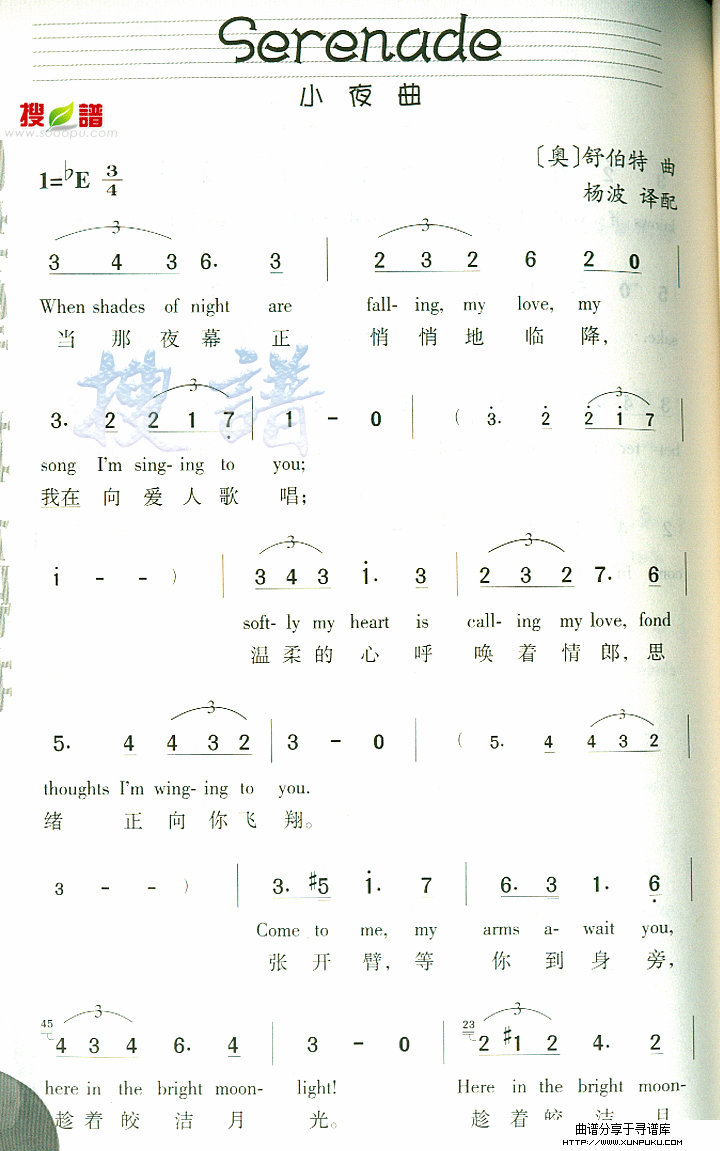 Serenade
小夜曲
搜谱
www.sooopu.com
1=♭E 3/4
〔奥〕舒伯特 曲
杨波 译配
3 4 3 6· 3 | 2 3 2 6 2 0 |
When shades of night are fall- ing, my love, my
当 那 夜 幕 正 悄 悄 地 临 降,
搜谱
3· 2 2 1 7 | 1 - 0 | ( 3· 2 2 1 7 |
song I'm sing- ing to you;
我在 向 爱 人 歌 唱;
1 - - ) | 3 4 3 1· 3 | 2 3 2 7· 6 |
soft- ly my heart is call- ing my love, fond
温 柔 的 心 呼 唤 着 情 郎, 思
5· 4 4 3 2 | 3 - 0 | ( 5· 4 4 3 2 |
thoughts I'm wing- ing to you.
绪 正 向 你 飞 翔。
3 - - ) | 3· #5 1· 7 | 6· 3 1· 6 |
Come to me, my arms a- wait you,
张 开 臂, 等 你 到 身 旁,
45 4 3 4 6· 4 | 3 - 0 | 23 2 #1 2 4· 2 |
here in the bright moon- light! Here in the bright moon-
趁 着 皎 洁 月 光。 趁 着 皎 洁 月
曲谱分享于寻谱库
HTTP://WWW.XUNPUKU.COM